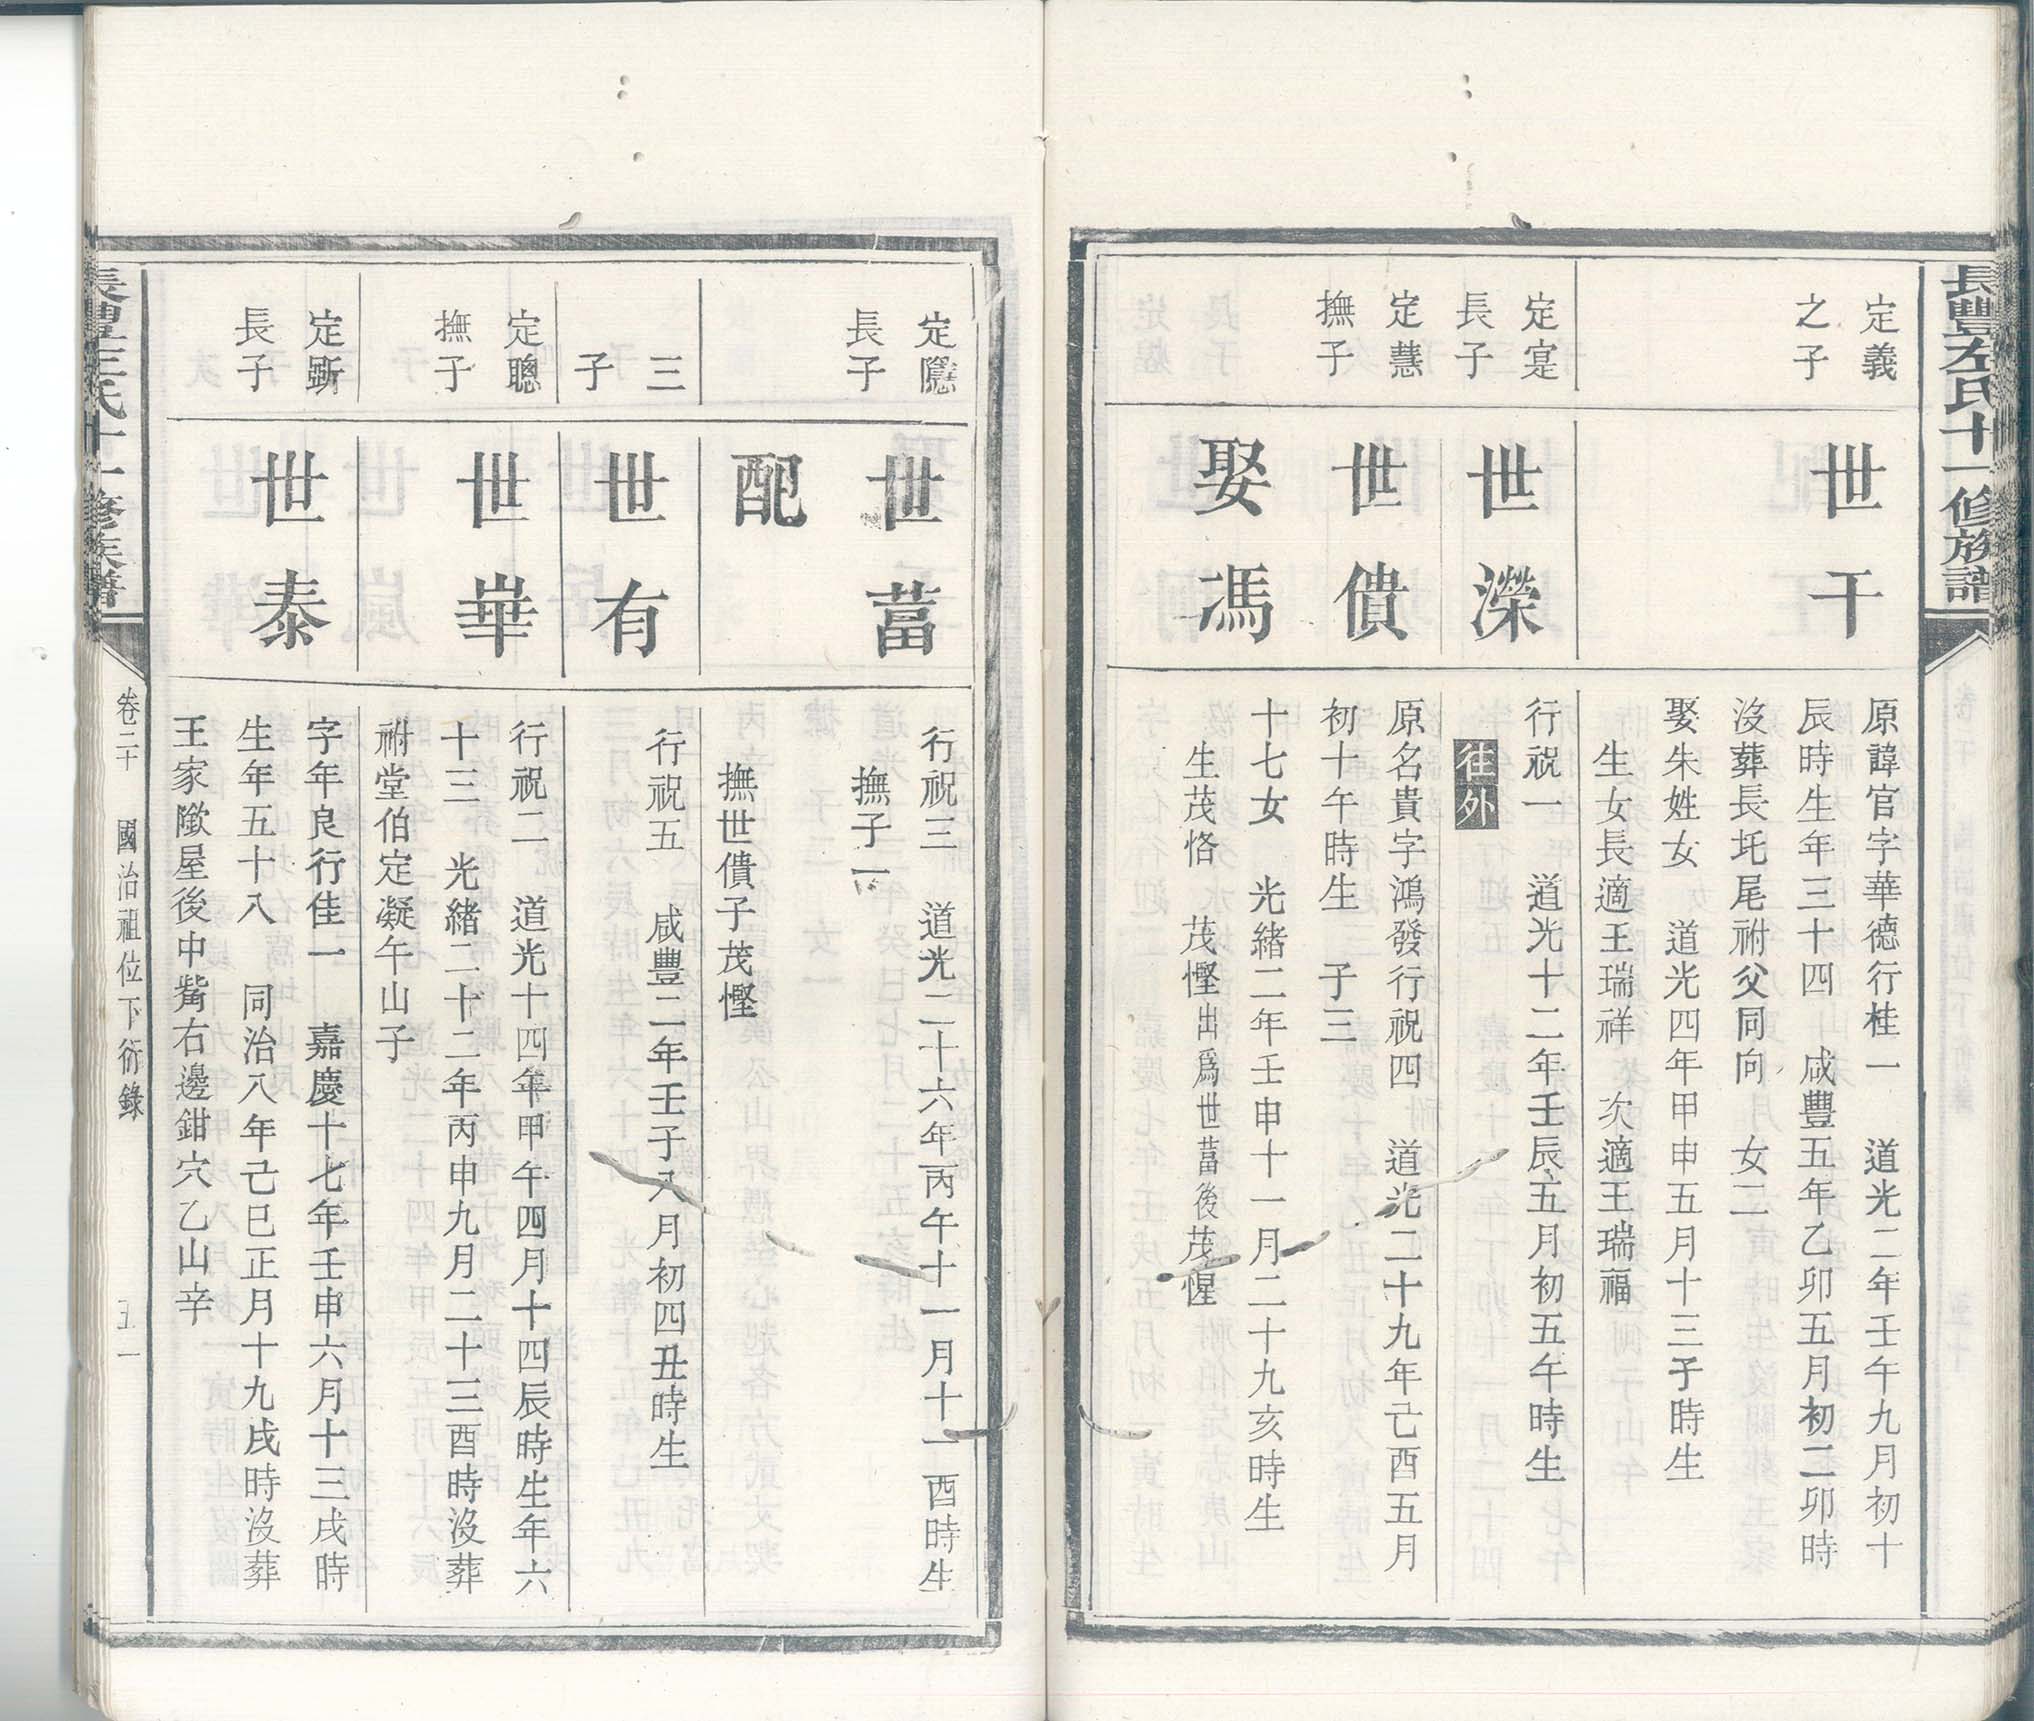 長豐左氏十一修族譜
定義
之子
世干
原諱官字華德行桂一　道光二年壬午九月初十
辰時生年三十四　咸豐五年乙卯五月初二卯時
沒葬長圫尾祔父同向　女二
娶朱姓女　道光四年甲申五月十三子時生
生女長適王瑞祥　次適王瑞福
定寔
長子
世濚
行祝一　道光十二年壬辰五月初五午時生
往外
定慧
撫子
世僨
原名貴字鴻發行祝四　道光二十九年己酉五月
初十午時生　子三
娶馮
十七女　光緒二年壬申十一月二十九亥時生
生茂恪　茂慳出爲世葍後茂惺
定隱
長子
世葍
行祝三　道光二十六年丙午十一月十一酉時生
撫子一
配
撫世僨子茂慳
三
子
世有
行祝五　咸豐二年壬子八月初四丑時生
定聰
撫子
世崋
行祝二　道光十四年甲午四月十四辰時生年六
十三　光緒二十二年丙申九月二十三酉時沒葬
祔堂伯定凝午山子
定斷
長子
世泰
字年良行佳一　嘉慶十七年壬申六月十三戌時
生年五十八　同治八年己巳正月十九戌時沒葬
王家隞屋後中觜右邊鉗穴乙山辛
長豐左氏十一修族譜
卷二十　國治祖位下衍錄　五一